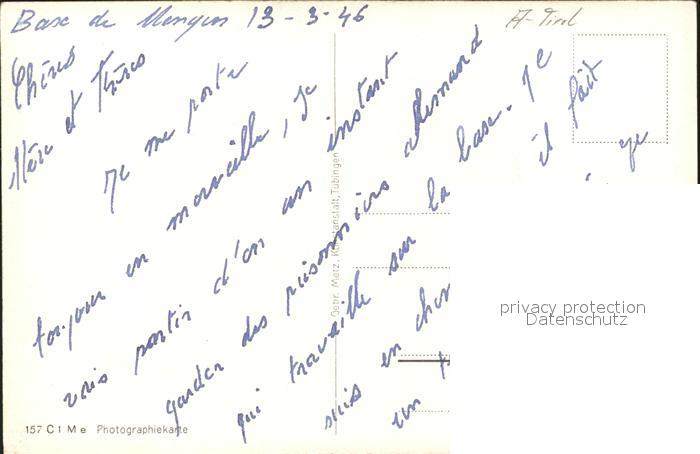 Base de Mengen 13-3-46
A-Tirol
Chères
Mère et Frères
Je me porte
toujour en merveille, je
vais partir d'on un instant
garder des prisonniers allemand
qui travaille sur la base. Je
suis en il fait
un
157 C 1 M e Photographiekarte
Gebr. Metz, Kunstanstalt, Tübingen
privacy protection
Datenschutz